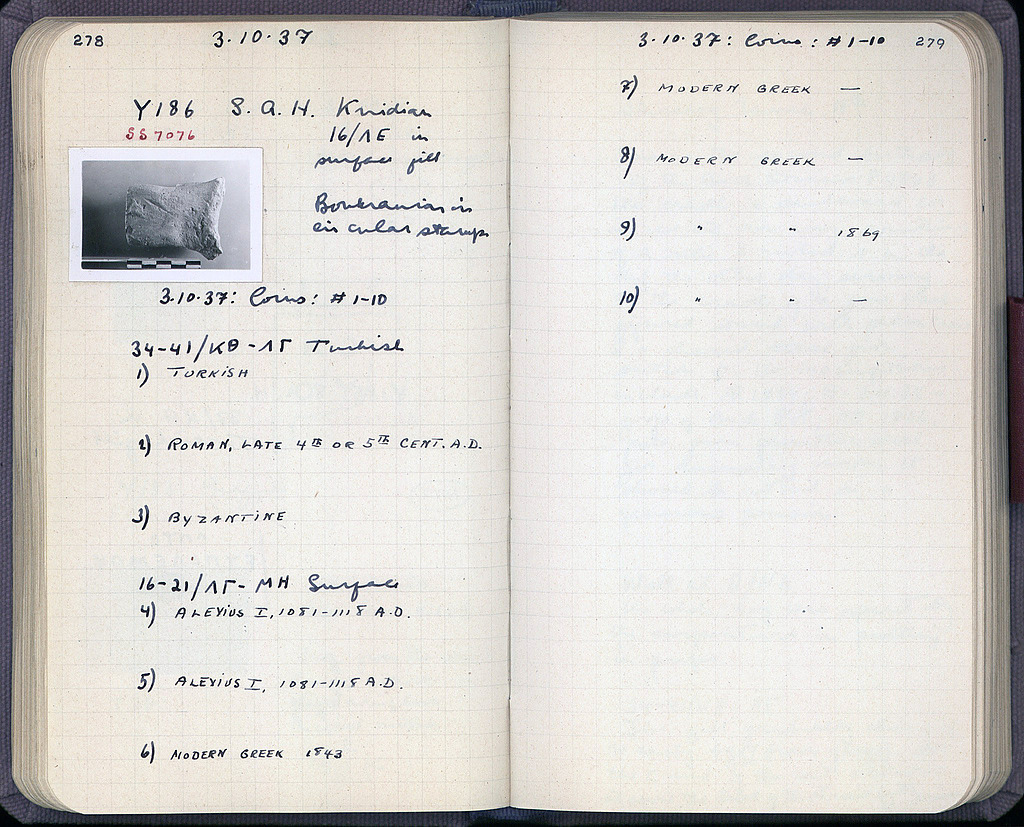 278
3·10·37
Y186 S.A.H. Knidian
SS7076
16/ΛΕ in
surface fill
Boukranion in
circular stamp
3·10·37: Coins: #1-10
34-41/ΚΘ-ΛΓ Turkish
1) TURKISH
2) ROMAN, LATE 4TH OR 5TH CENT. A.D.
3) BYZANTINE
16-21/ΛΓ-ΜΗ Surface
4) ALEXIUS I, 1081-1118 A.D.
5) ALEXIUS I, 1081-1118 A.D.
6) MODERN GREEK 1843
3·10·37: Coins: #1-10 279
7) MODERN GREEK —
8) MODERN GREEK —
9) " " 1869
10) " " —